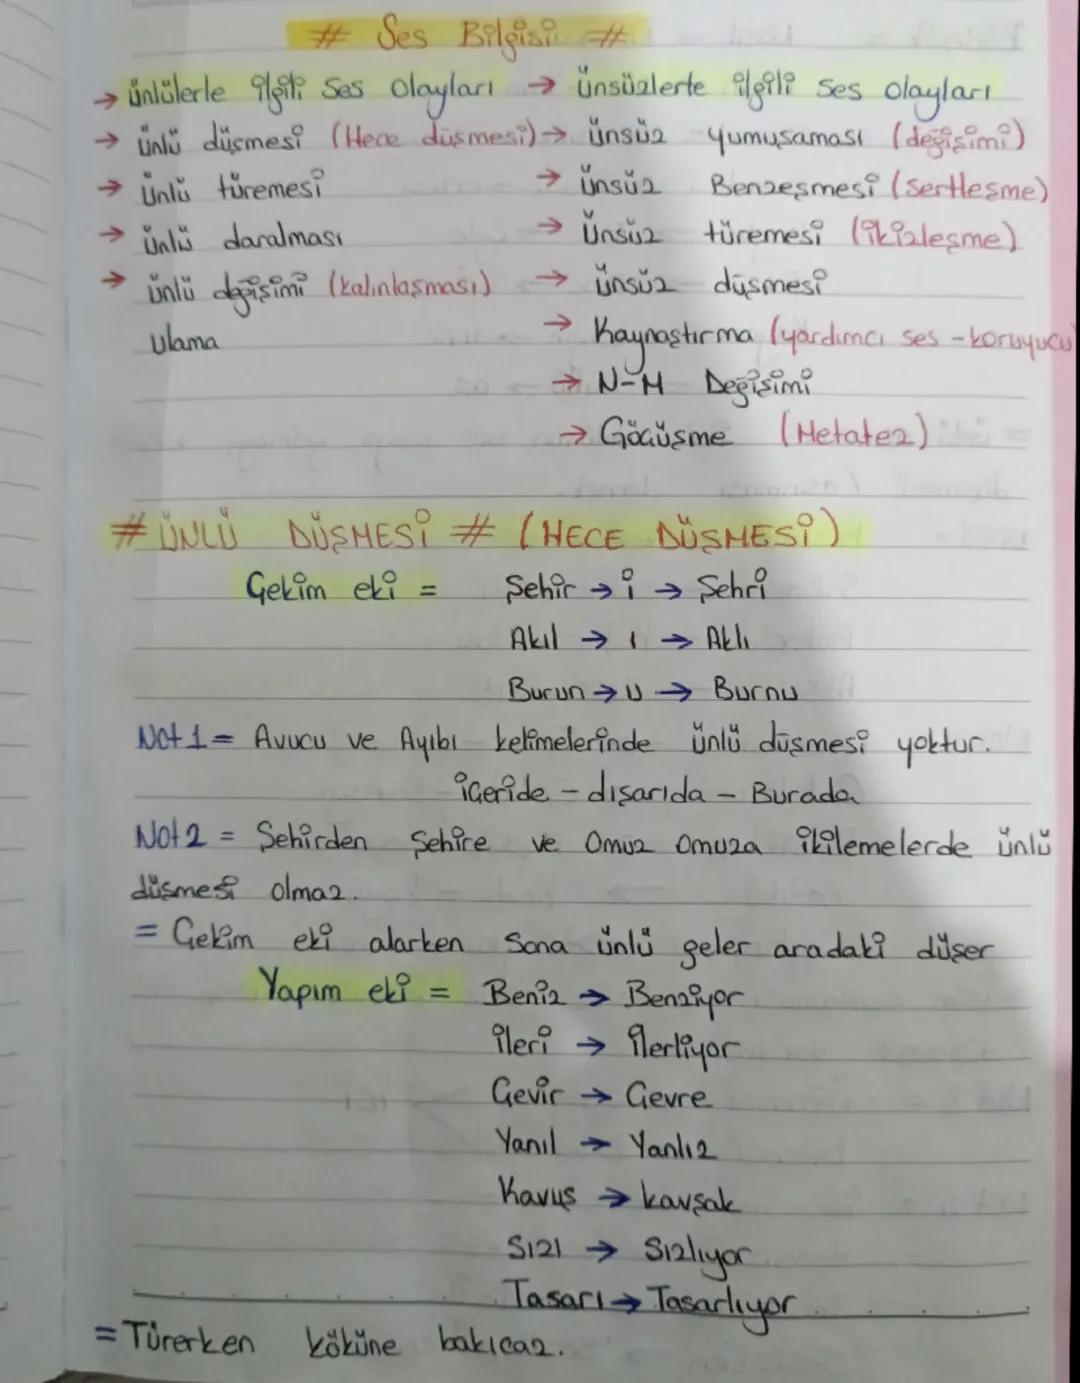 # Ses Bilgisi #
→ ünlülerle ilgili Ses Olayları → ünsüzlerle ilgili Ses olayları
→ ünlü düşmesi (Hece düşmesi) → ünsüz yumuşaması (değişimi)
→ ünlü türemesi → ünsüz Benzeşmesi (sertleşme)
→ ünlü daralması → Ünsüz türemesi (ikizleşme)
→ ünlü değişimi (kalınlaşması) → ünsüz düşmesi
Ulama → Kaynaştırma (yardımcı ses - koruyucu
→ N-M Değişimi
→ Göçüşme (Metatez)
# ÜNLÜ DÜŞMESİ # (HECE DÜŞMESİ)
Çekim eki = Şehir → i → Şehri
Akıl → ı → Aklı
Burun → u → Burnu
Not 1 = Avucu ve Ayıbı kelimelerinde ünlü düşmesi yoktur.
içeride - dışarıda - Burada
Not 2 = Şehirden Şehire ve Omuz Omuza ikilemelerde ünlü
düşmesi olmaz.
= Çekim eki alarken Sona ünlü geler aradaki düşer
Yapım eki = Beniz → Benziyor
ileri → ilerliyor
Çevir → Çevre
Yanıl → Yanlız
Kavuş → kavşak
Sızı → Sızlıyor
Tasarı → Tasarlıyor
= Türerken köküne bakıcaz.